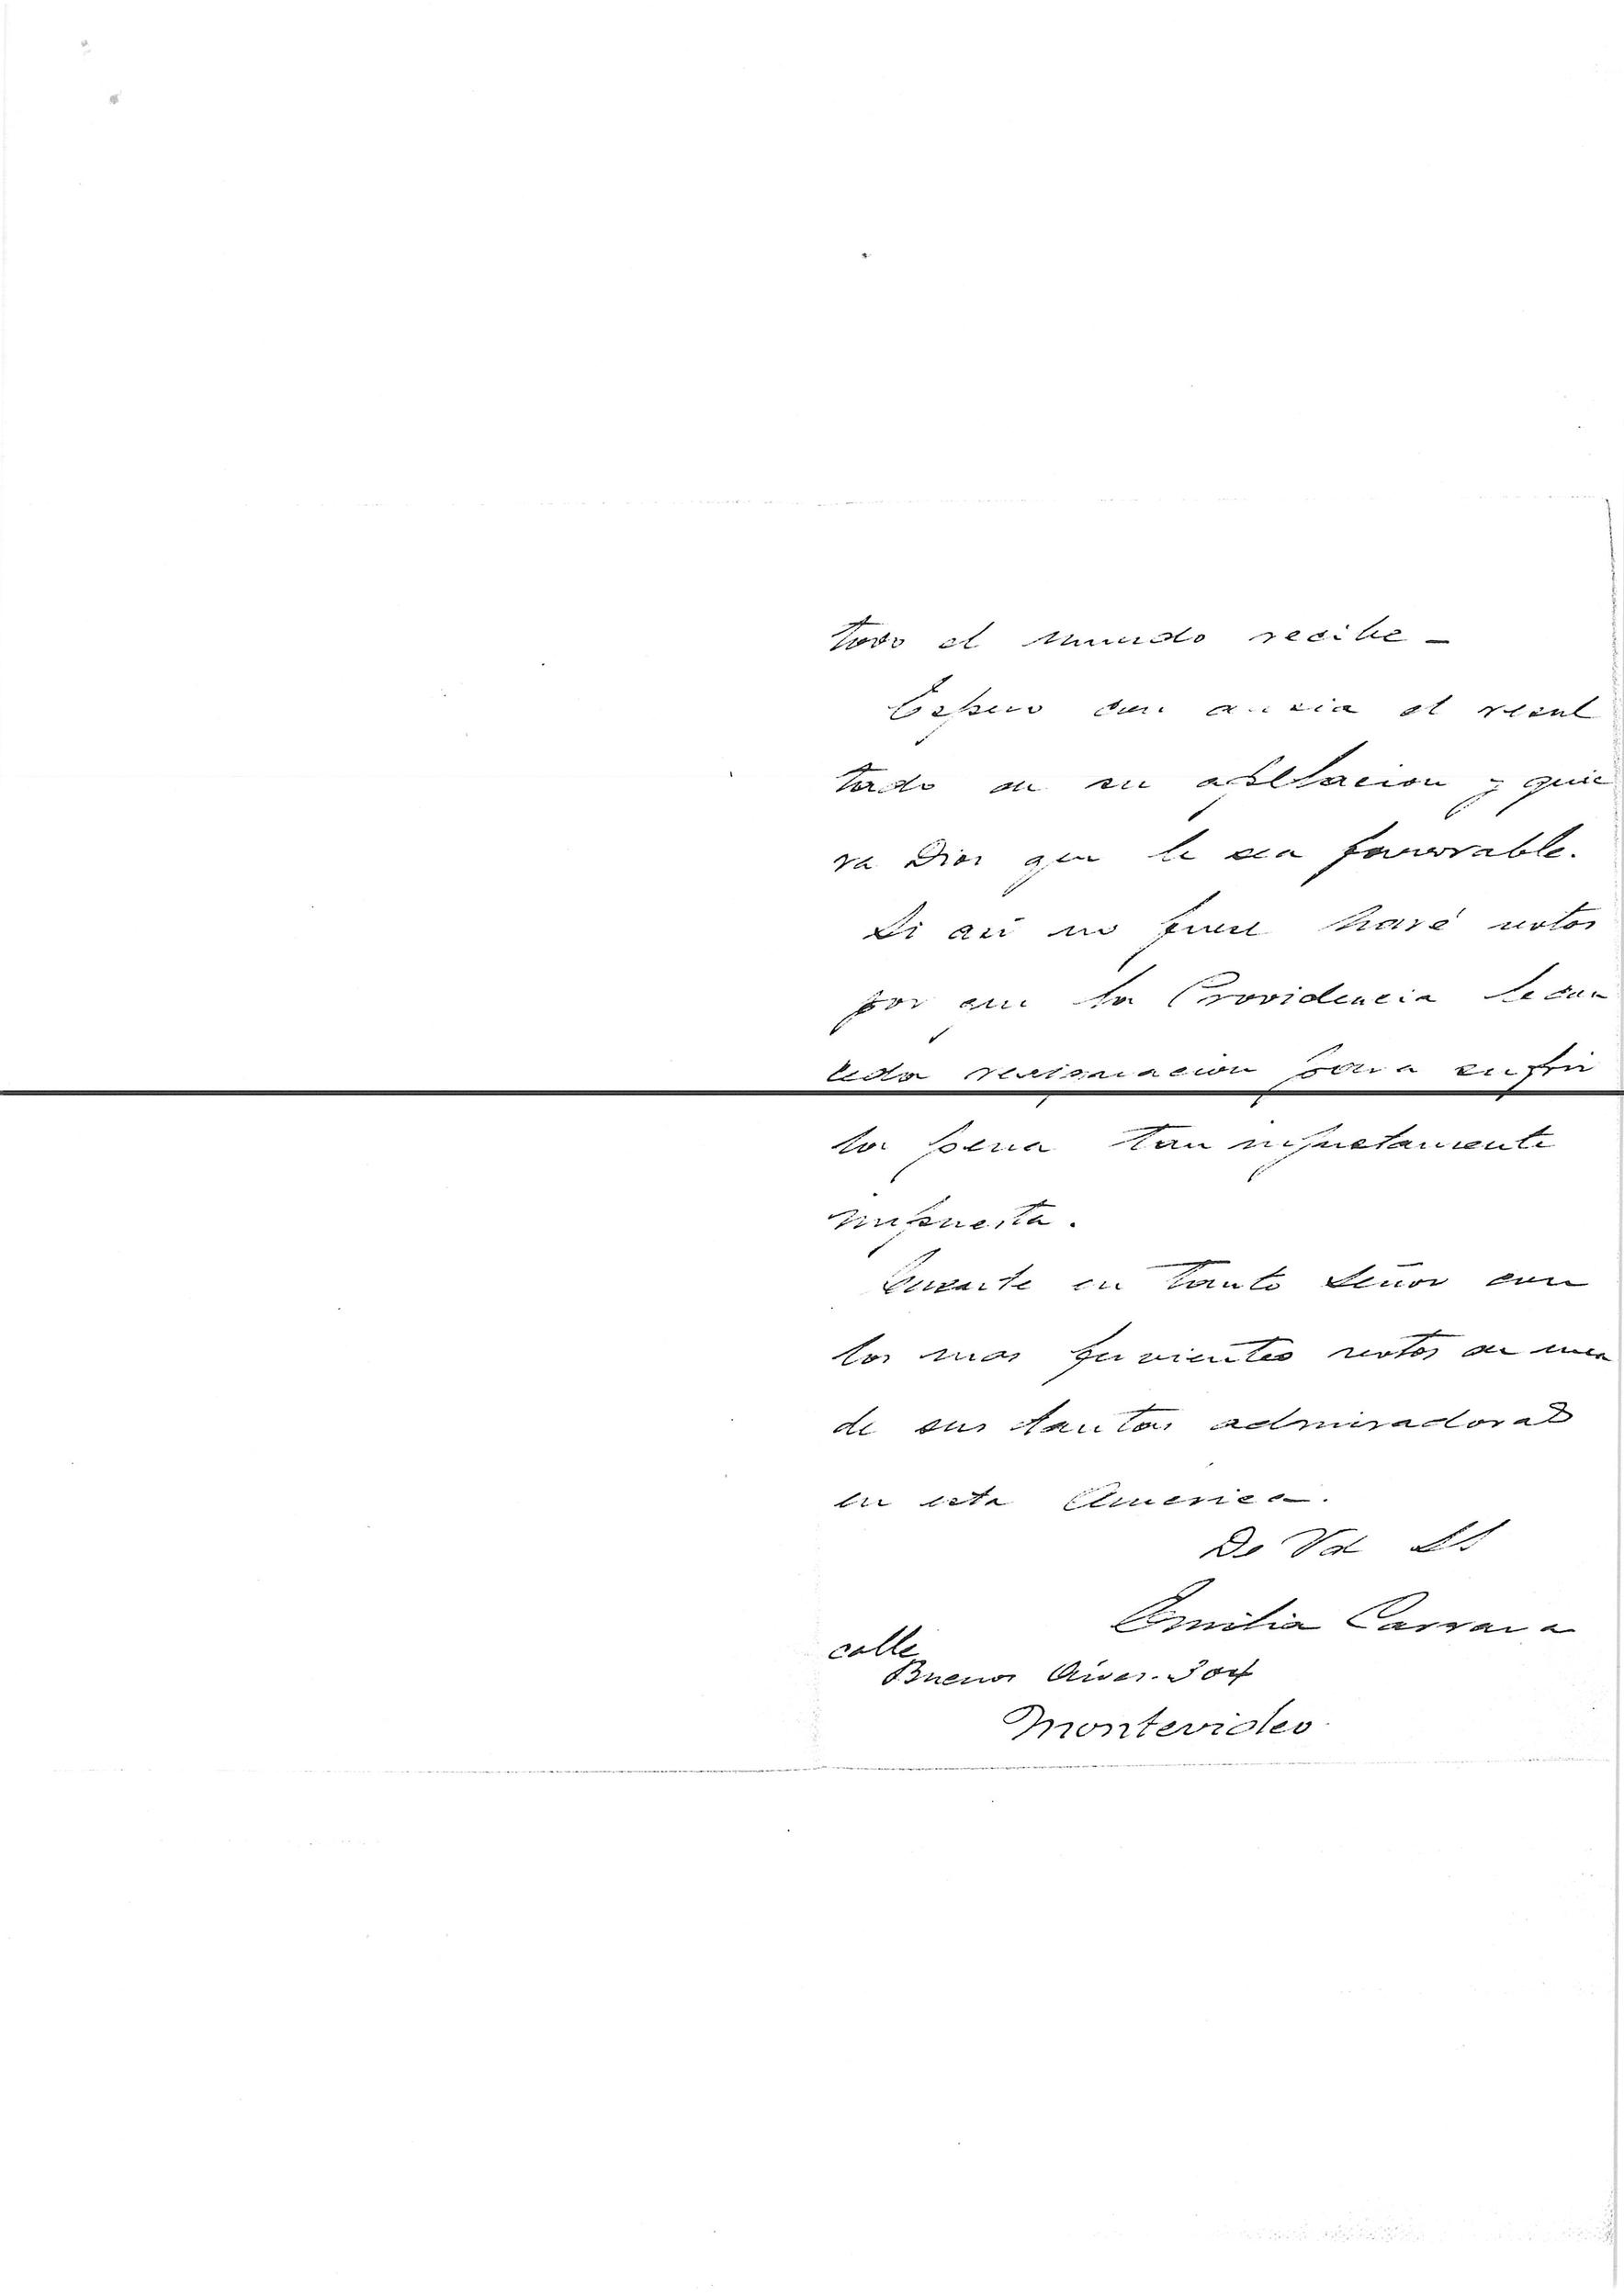 todo el mundo recibe –
Espero con ancia el resul
tado de su apelacion y quie
ra Dios que le sea favorable.
Si asi no fuese haré votos
por que la Providencia le con
ceda resignacion para sufrir
la pena tan injustamente
impuesta.
en tanto Señor con
los mas fervientes votos de una
de sus tantas admiradoras
en esta America.
De Vd SS
Emilia Carrara
calle
Buenos Aires.
Montevideo